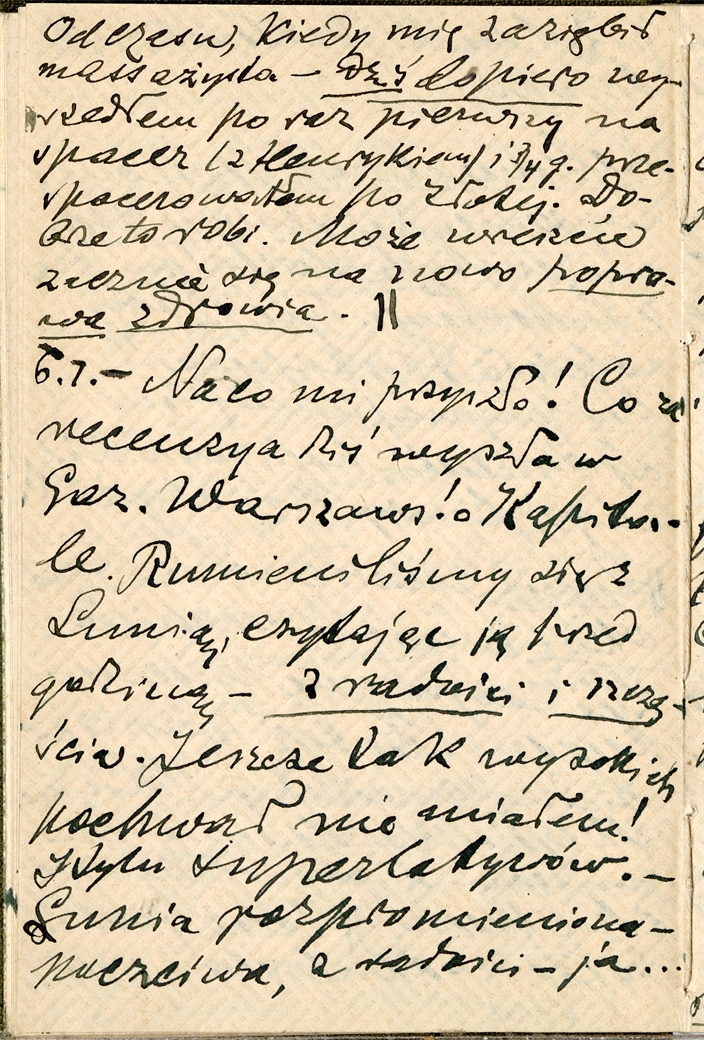 Od czasu, kiedy mię zaziębił
massażysta – dziś dopiero wy-
szedłem po raz pierwszy na
spacer (z Henrykiem) i 3/4 g. prze-
spacerowałem po Złotej. Do-
brze to robi. Może wreszcie
zacznie się na nowo popra-
wa zdrowia. ||
6.7. – Na co mi przyszło! Co za
recenzya dziś wyszła w
Gaz. Warszaws! o Kapito-
le. Rumieniliśmy się z
Lunią, czytając ją przed
godziną – z radości i szczę-
ścia. Jeszcze tak wysokich
pochwał nie miałem!
I tylu superlatywów. –
Lunia rozpromieniona –
poczciwa, z radości – ja...